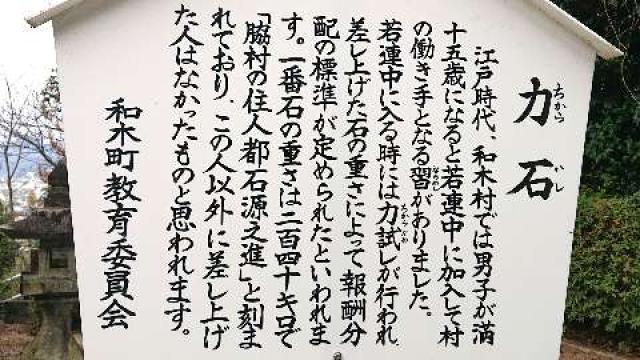 力石
ちから いし
江戸時代、和木村では男子が満
十五歳になると若連中に加入して村
の働き手となる習がありました。
ならわし
若連中に入る時には力試しが行われ
ちからだめ
差し上げた石の重さによって報酬分
配の標準が定められたといわれま
す。一番石の重さは二百四十キロで
「脇村の住人都石源之進」と刻ま
れており、この人以外に差し上げ
た人はなかったものと思われます。
和木町教育委員会